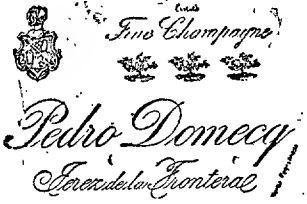 Fino Champagne
Pedro Domecq
Jerez de la Frontera